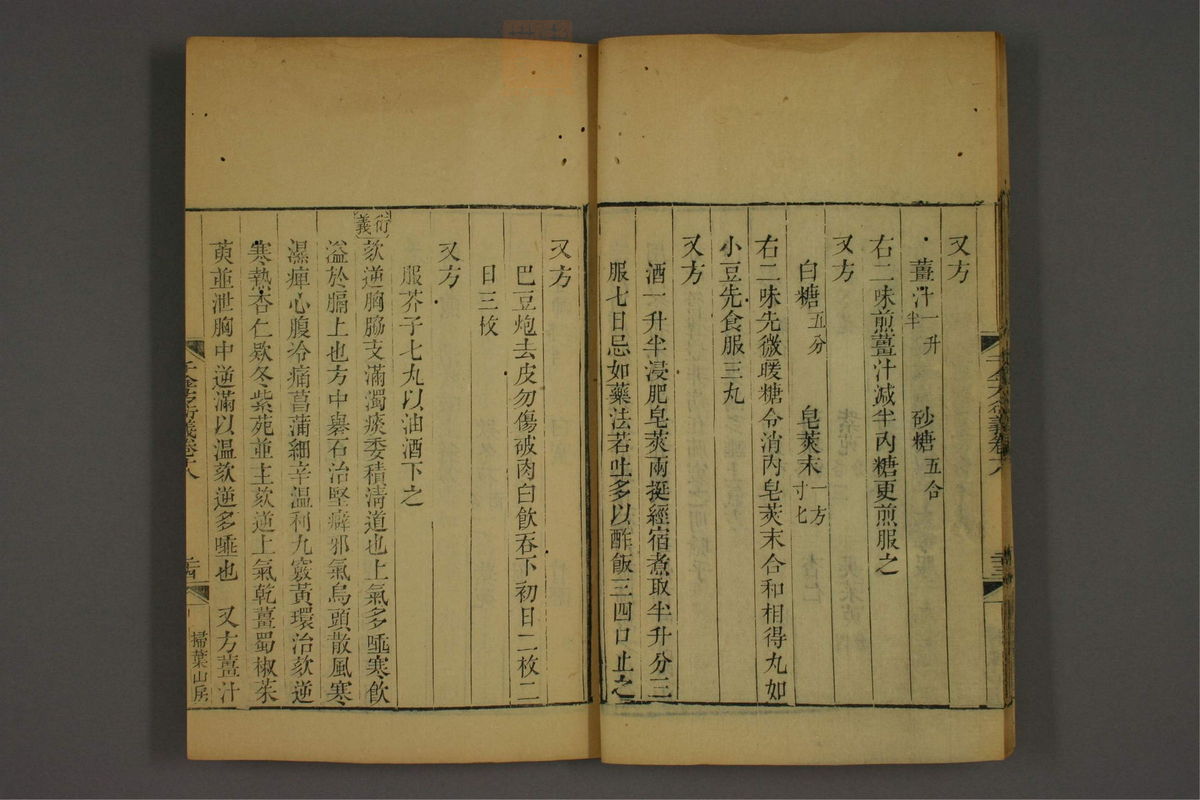 又方
薑汁一升半 砂糖五合
右二味煎薑汁減半內糖更煎服之
又方
白糖五分 皂莢末一方寸匕
右二味先微暖糖令消內皂莢末合和相得丸如
小豆先食服三丸
又方
酒一升半浸肥皂莢兩挺經宿煮取半升分三
服七日忌如藥法若吐多以酢飯三四口止之
又方
巴豆炮去皮勿傷破肉白飲吞下初日二枚二
日三枚
又方
服芥子七丸以油酒下之
衍義欬逆胸脇支滿濁痰委積淸道也上氣多唾寒飲
溢於膈上也方中礜石治堅癖邪氣烏頭散風寒
濕痺心腹冷痛菖蒲細辛溫利九竅黃環治欬逆
寒熱杏仁款冬紫苑並主欬逆上氣乾薑蜀椒茱
萸並泄胸中逆滿以溫欬逆多唾也 又方薑汁
千金方衍義卷十八
掃葉山房